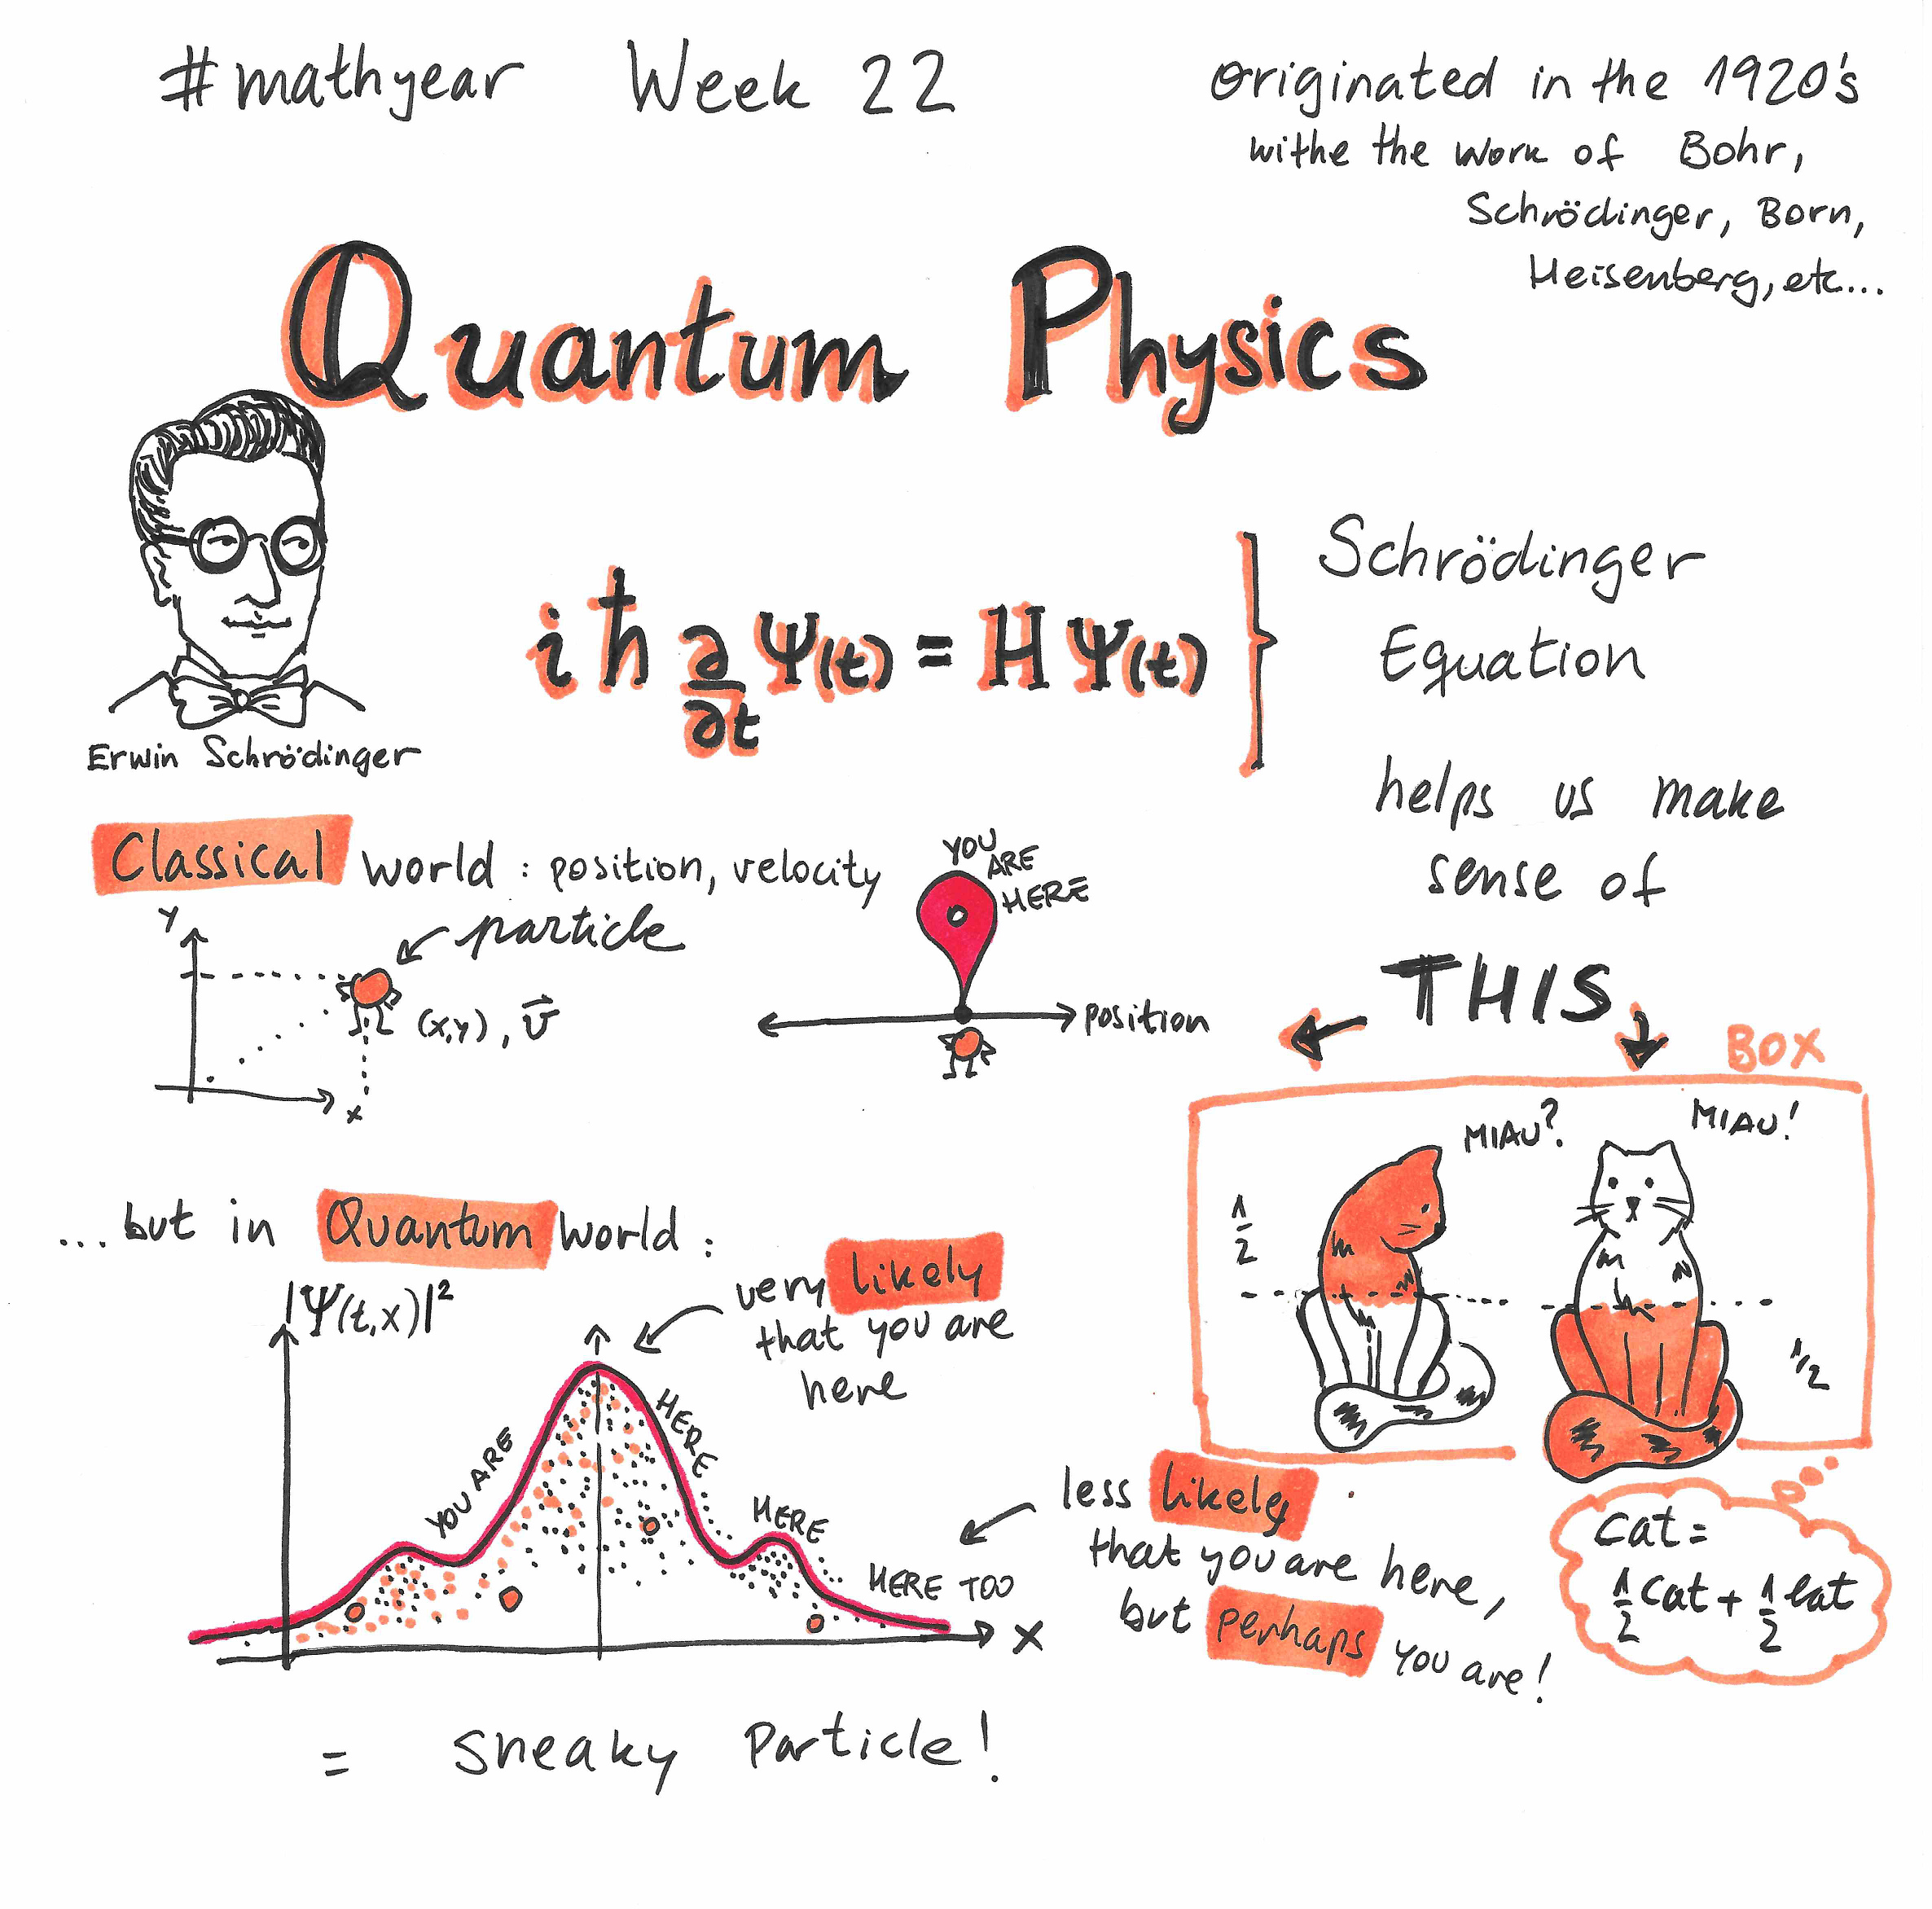 #mathyear Week 22
originated in the 1920's
withe the work of Bohr,
Schrödinger, Born,
Heisenberg, etc...
Quantum Physics
iħ ∂/∂t Ψ(t) = H Ψ(t)
Schrödinger
Equation
helps us make
sense of
THIS
Erwin Schrödinger
Classical world : position, velocity
y
particle
(x,y), v⃗
x
YOU
ARE
HERE
position
BOX
MIAU?
MIAU!
1/2
1/2
cat =
1/2 cat + 1/2 cat
...but in Quantum world :
|Ψ(t,x)|²
very likely
that you are
here
YOU ARE
HERE
HERE
HERE TOO
x
less likely
that you are here,
but perhaps you are!
= Sneaky Particle!